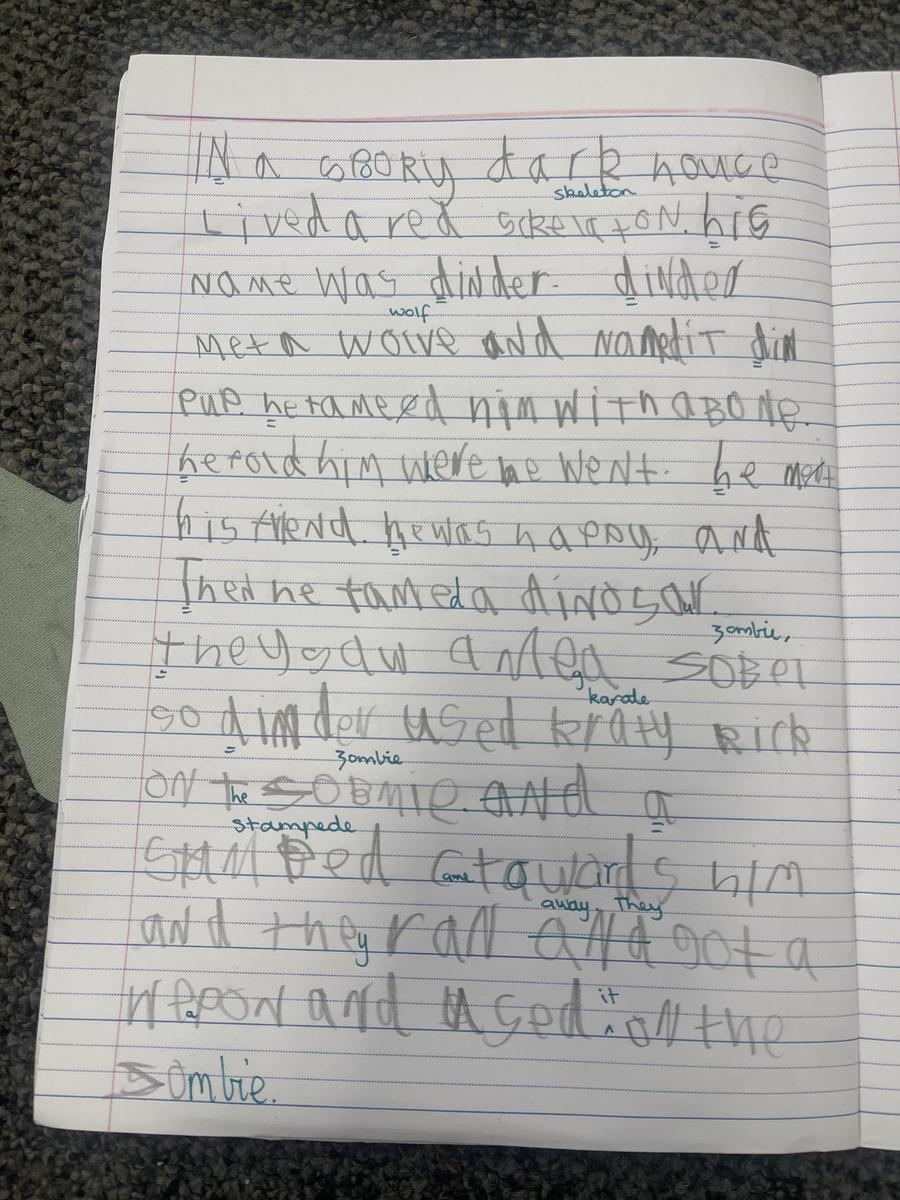 IN a spooky dark house
skeleton
Lived a red sckelatoN. his
Name was dinder. dinder
wolf
Met a wolve and Named iT dim
pup. he tameed him with a BONe.
he told him where he went. he met
his friend. he was happy, and
Then he tamed a dinosaur.
zombie,
they saw a Meg SOBei
karate
so dimder used kraty kick
zombie
ON The SOBMie. ANd a
stampede
StaMPed Came towards him
away. They
and they ran and got a
Weapon and used it on the
Zombie.